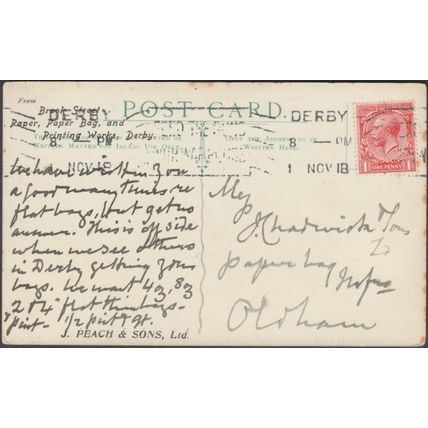 POST CARD.
From
Brook Street
Paper, Paper Bag, and
Printing Works, Derby.
DERBY
8 - PM
1 NOV 18
DERBY
8 - PM
1 NOV 18
ONLY THE ADDRESS TO BE
WRITTEN HERE.
WRITTEN MATTER FOR INLAND USE ONLY
ONE PENNY
We have written you
a good many times re
flat bags, but get no
answer. This is off side
when we see others
in Derby getting your
bags. We want 4oz, 8oz
2 & 4 flat thin bags-
pint - 1/2 pint & qt.
J. PEACH & SONS, Ltd.
J Chadwick & Sons
paper bag Mfrs
Oldham